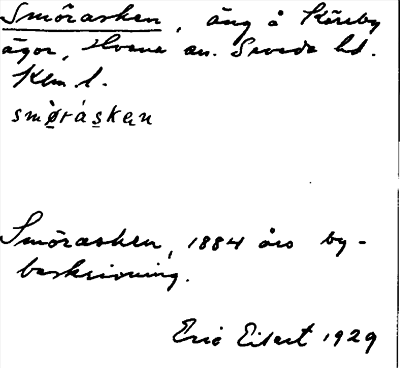 Smörasken, äng å Köreby
ägor, Hvena sn. Sevede hd.
Klm l.
smø̀rás̱kən
Smörasken, 1884 års by-
beskrivning.
Eric Elsert 1929